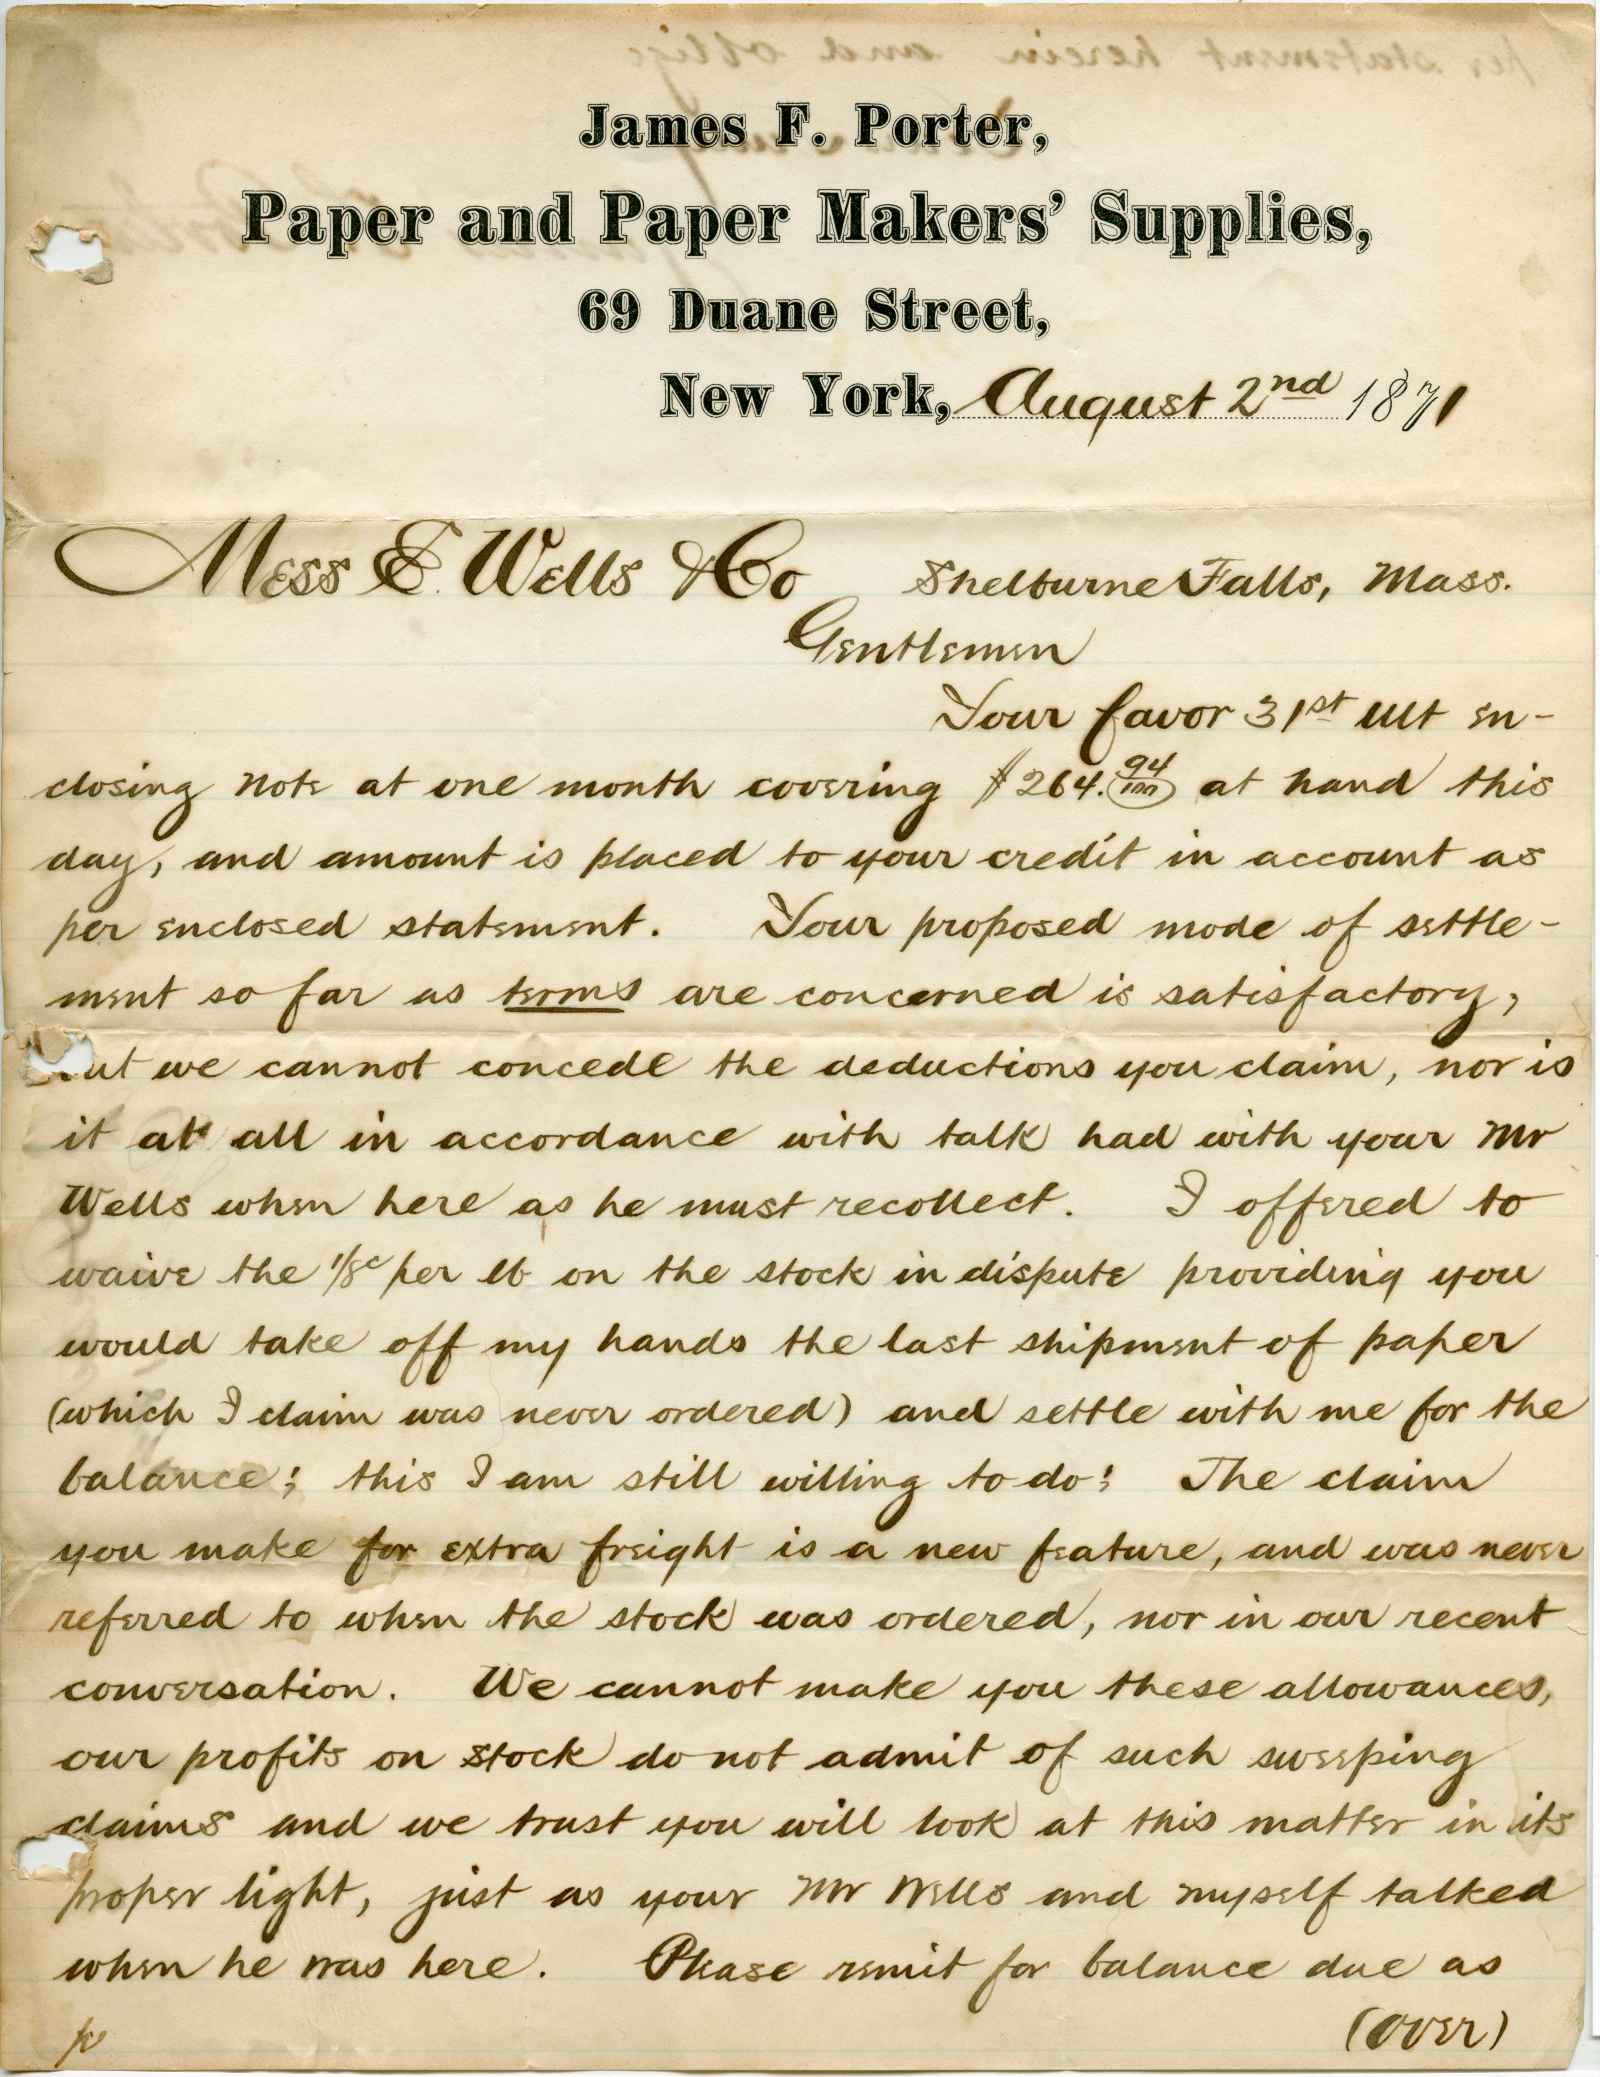 James F. Porter,
Paper and Paper Makers' Supplies,
69 Duane Street,
New York, August 2nd 1871
Mess E. Wells & Co Shelburne Falls, Mass.
Gentlemen
Your favor 31st Ult en-
closing note at one month covering $264.94/100 at hand this
day, and amount is placed to your credit in account as
per enclosed statement. Your proposed mode of settle-
ment so far as terms are concerned is satisfactory,
but we cannot concede the deductions you claim, nor is
it at all in accordance with talk had with your Mr
Wells when here as he must recollect. I offered to
waive the 1/8c per lb on the stock in dispute providing you
would take off my hands the last shipment of paper
(which I claim was never ordered) and settle with me for the
balance; this I am still willing to do; The claim
you make for extra freight is a new feature, and was never
referred to when the stock was ordered, nor in our recent
conversation. We cannot make you these allowances,
our profits on stock do not admit of such sweeping
claims and we trust you will look at this matter in its
proper light, just as your Mr Wells and myself talked
when he was here. Please remit for balance due as
(over)